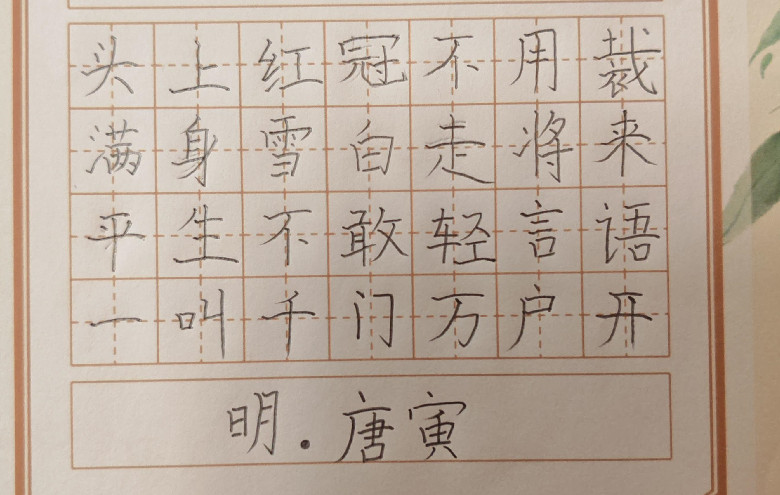 头上红冠不用裁
满身雪白走将来
平生不敢轻言语
一叫千门万户开
明.唐寅